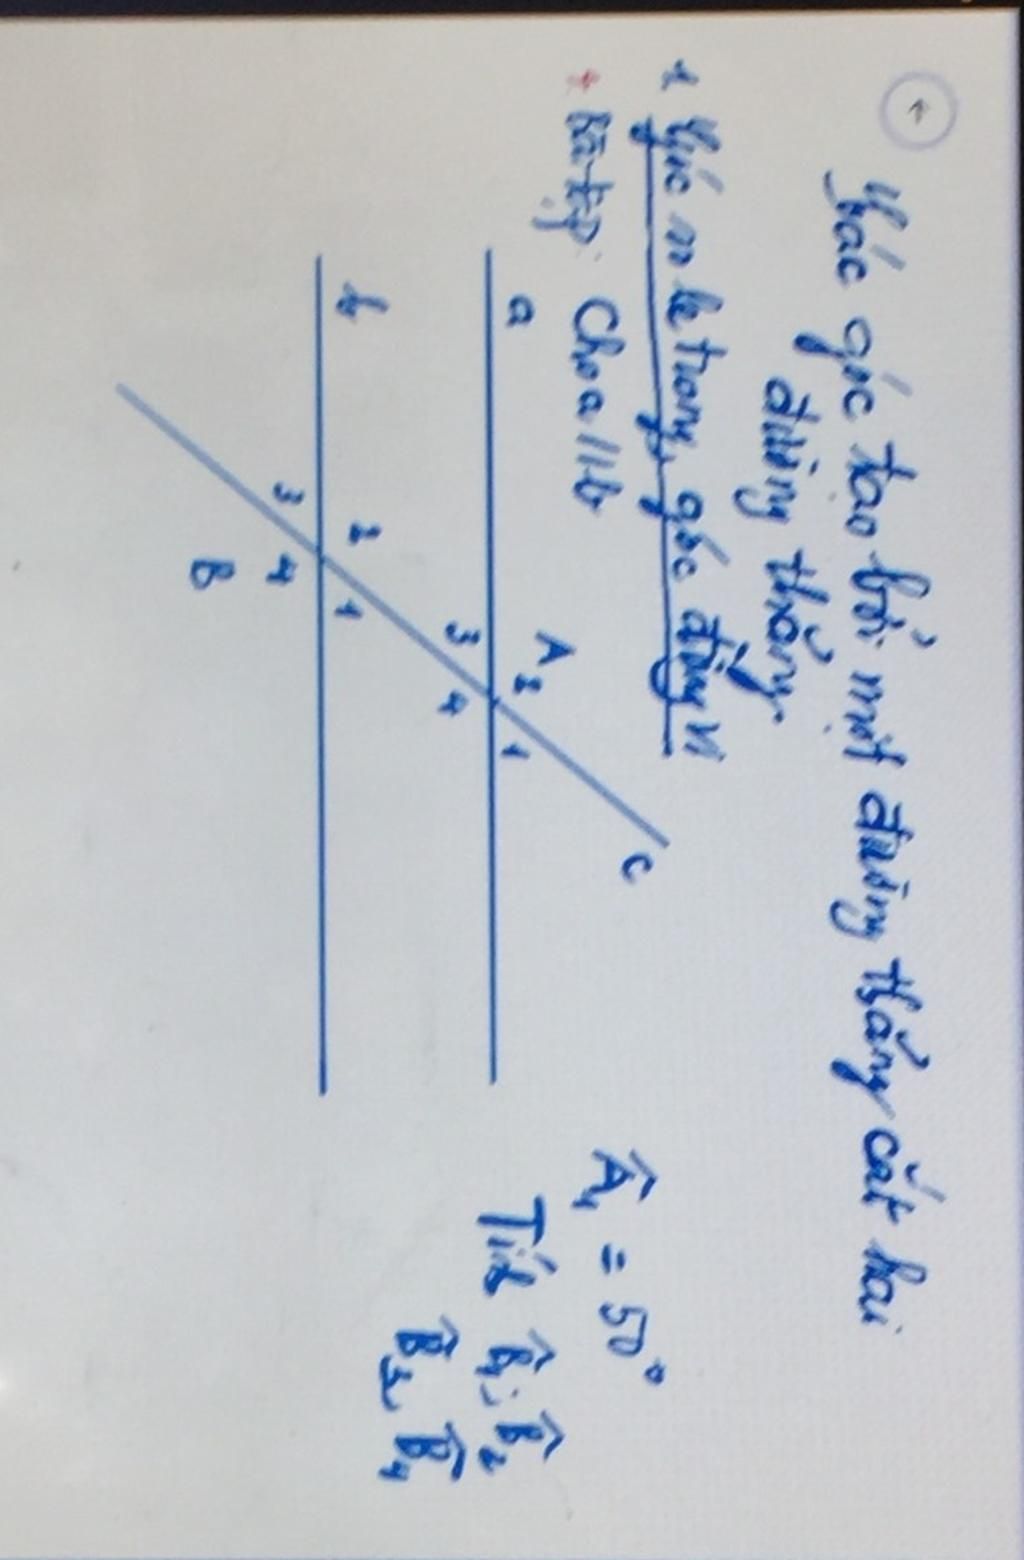 Các góc tạo bởi một đường thẳng cắt hai
đường thẳng.
1 Góc so le trong, góc đồng vị
* Bài tập: Cho a // b
a
A
2
1
3
4
c
b
2
1
3
4
B
Â₁ = 50°
Tính B̂₁; B̂₂
B̂₃, B̂₄